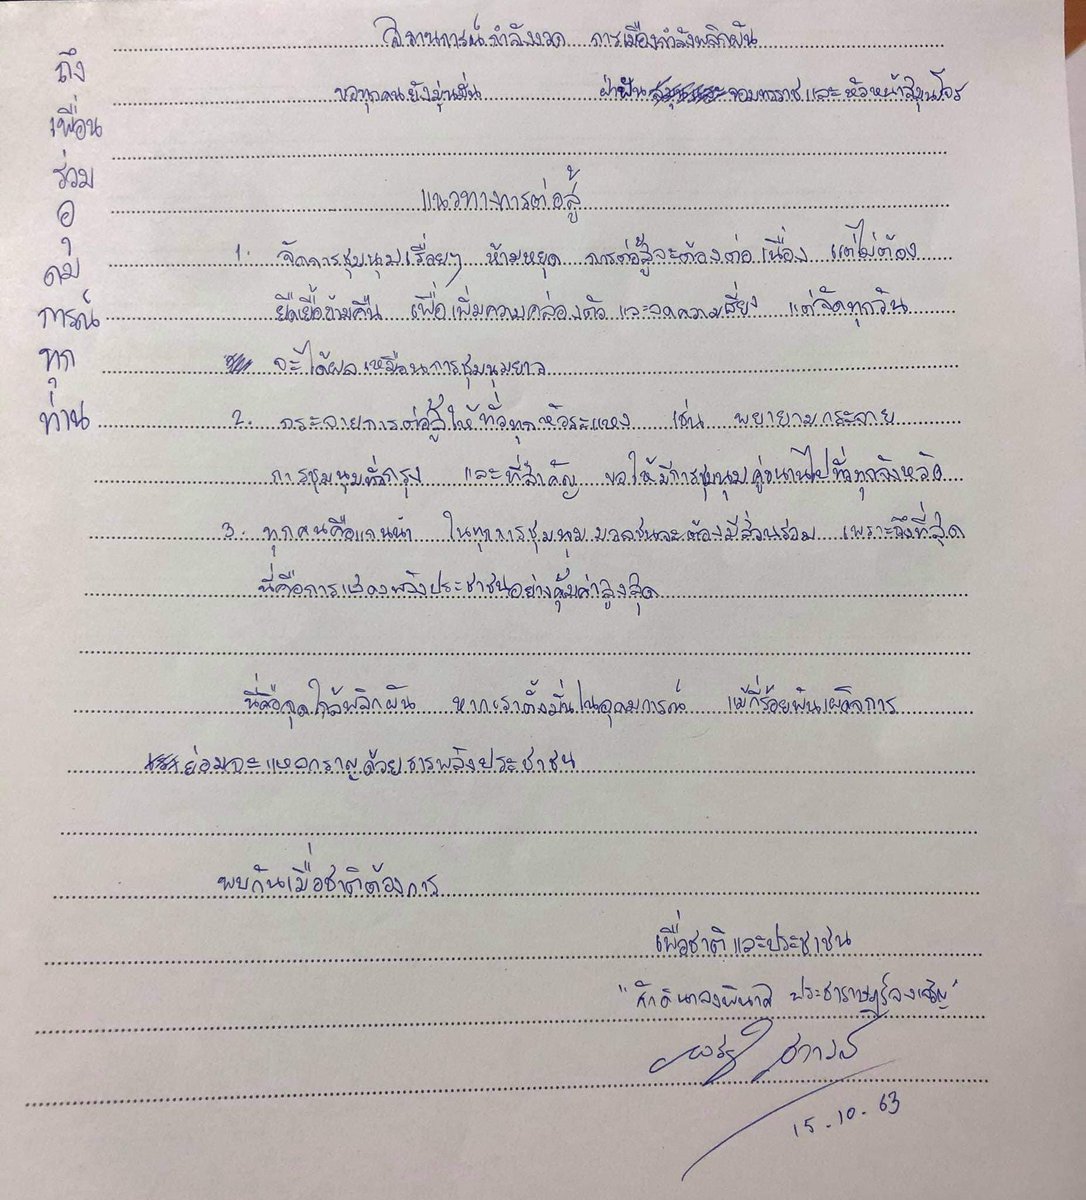 ถึง
เพื่อน
ร่วม
อุ
ดม
การณ์
ทุก
ท่าน
สถานการณ์กำลังงวด การเมืองกำลังพลิกผัน
ขอทุกคนยังมุ่นมั่น ฝ่าฟัน จอมทรราช และหัวหน้าสมุนโจร
แนวทางการต่อสู้
1. จัดการชุมนุมเรื่อยๆ ห้ามหยุด การต่อสู้จะต้องต่อเนื่อง แต่ไม่ต้อง
ยืดเยื้อข้ามคืน เพื่อเพิ่มความคล่องตัว และลดความเสี่ยง แต่จัดทุกวัน
จะได้ผลเหมือนการชุมนุมยาว
2. กระจายการต่อสู้ให้ทั่วทุกหัวระแหง เช่น พยายามกระจาย
การชุมนุมทั่วกรุง และที่สำคัญ ขอให้มีการชุมนุมคู่ขนานไปทั่วทุกจังหวัด
3. ทุกคนคือแกนนำ ในทุกการชุมนุม มวลชนจะต้องมีส่วนร่วม เพราะถึงที่สุด
นี่คือการแสดงพลังประชาชนอย่างคุ้มค่าสูงสุด
นี่คือจุดใกล้พลิกผัน หากเราตั้งมั่นในอุดมการณ์ แม้กี่ร้อยพันเผด็จการ
ย่อมจะแหลกราญด้วยธารพลังประชาชน
พบกันเมื่อชาติต้องการ
เพื่อชาติ และประชาชน
"ศักดินาจงพินาศ ประชาราษฎร์จงเจริญ"
15.10.63